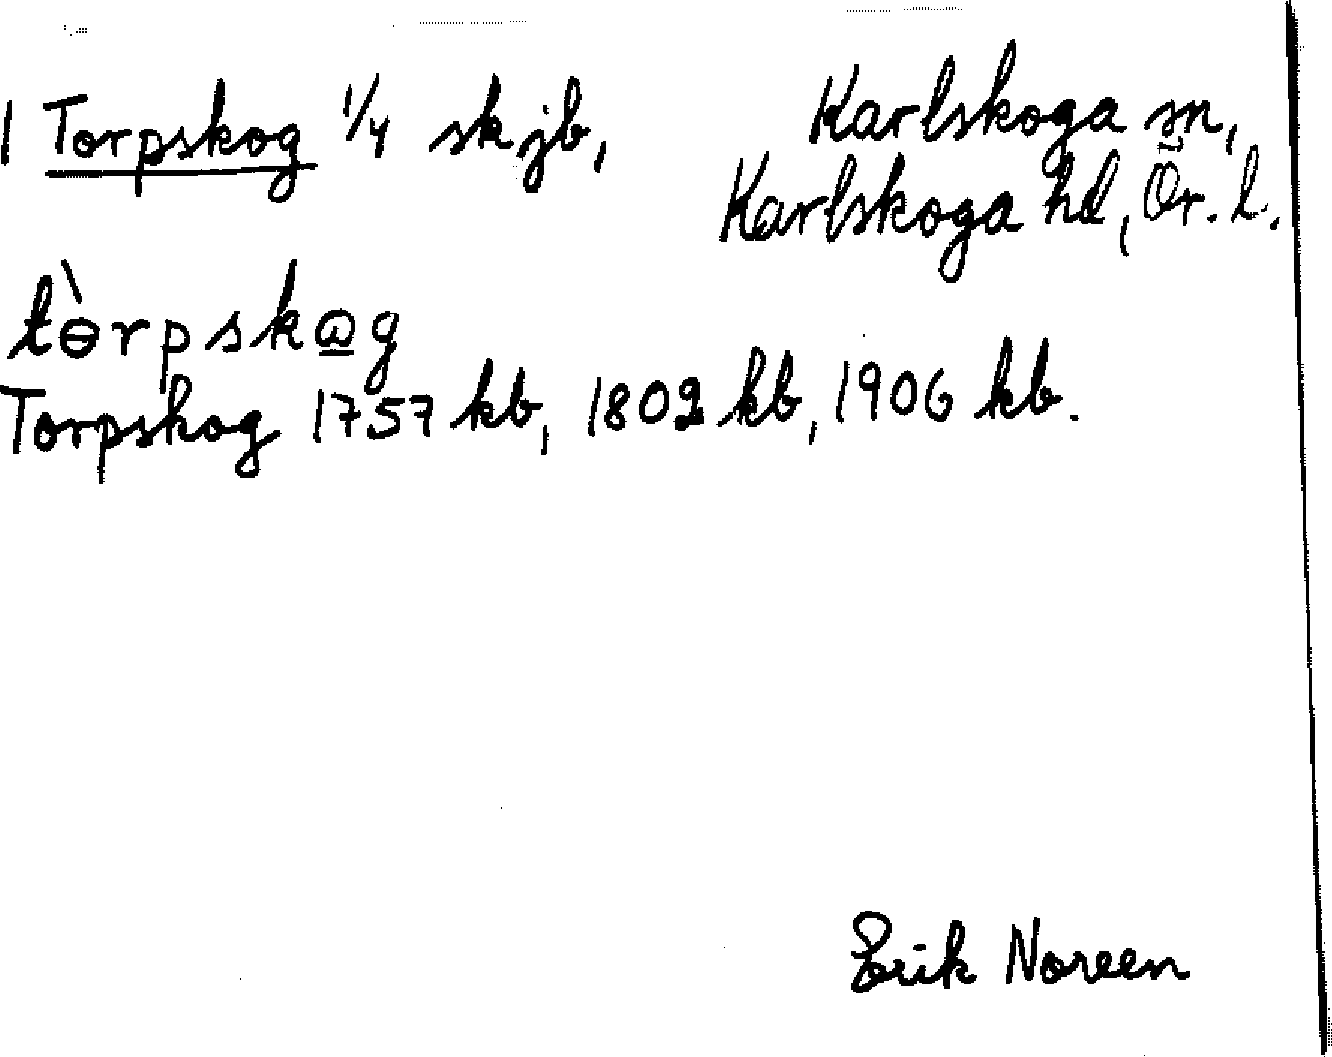 1 Torpskog 1/4 skjb, Karlskoga sn,
Karlskoga hd, Ör. l.
tɵ̀rpskɷg
Torpskog 1757 kb, 1802 kb, 1906 kb.
Erik Noreen